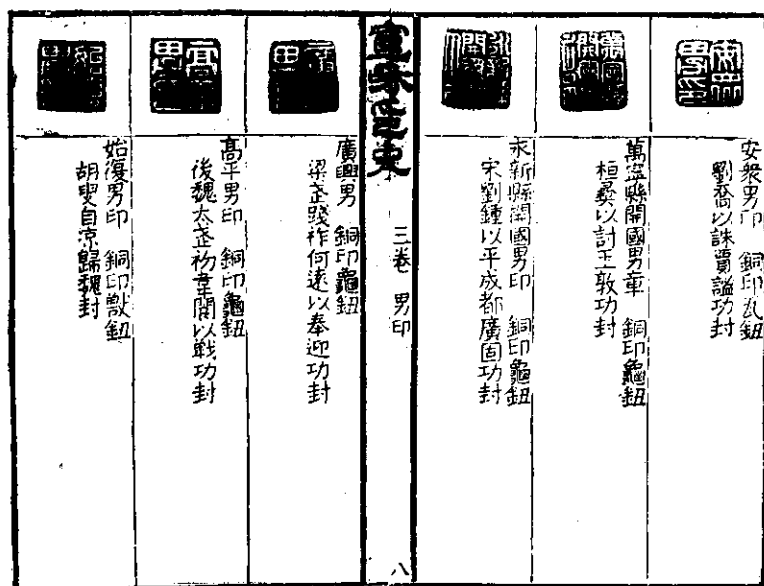 安衆男印　銅印瓦鈕
劉喬以誅賈謐功封
萬寧縣開國男章　銅印龜鈕
桓彝以討王敦功封
永新縣開國男印　銅印龜鈕
宋劉鍾以平成都廣固功封
宣和印史
三卷　男印
八
廣興男　銅印龜鈕
梁武踐祚何遠以奉迎功封
高平男印　銅印龜鈕
後魏太武初韋閬以戰功封
始復男印　銅印獸鈕
胡叟自涼歸魏封